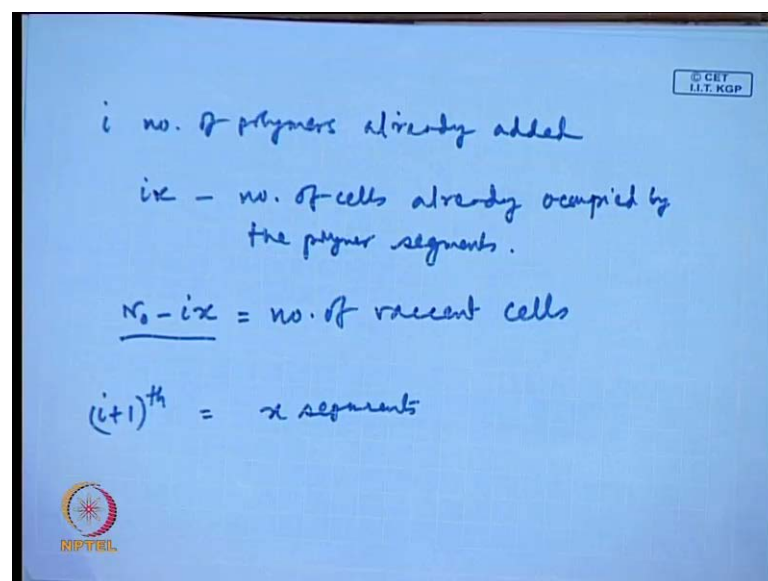 © CET
I.I.T. KGP
i no. of polymers already added
ix – no. of cells already occupied by
the polymer segments.
N₀ – ix = no. of vaccent cells
(i+1)ᵗʰ = x segments
NPTEL